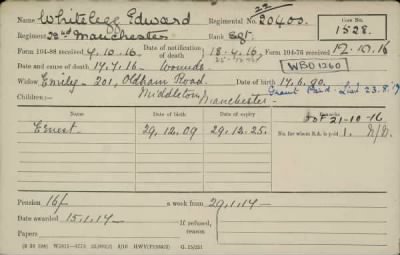 Name Whitelegg Edward Regimental No. 22/20400. Case No. 1528.
Regiment 22nd Manchester Rank Sgt.
Form 104-88 received 4.10.16. Date of notification of death 18.4.16 Form 104-76 received 12.10.16
Date and cause of death 19.7.16 Wounds. WBO 1260
Widow Emily - 201, Oldham Road, Date of birth 17.6.90.
Children:— Middleton, Manchester. Grant Paid. List 23.8.19
Date of birth Date of expiry Remarks
Ernest 29.12.09 29.12.25. 21-10-16
No. for whom S.A. is paid 1.
Pension 16/- a week from 29.1.17—
Date awarded 15.1.17— If refused, reason
Papers